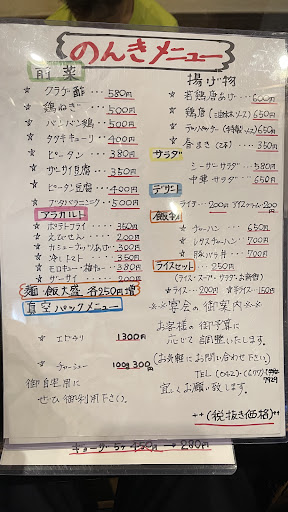 のんきメニュー
前菜
☆ クラゲ酢 ... 580円
☆ 鶏ねぎ ... 500円
☆ バンバン鶏 ... 500円
☆ タタキキューリ ... 400円
☆ ピータン ... 380円
☆ ザーサイ豆腐 ... 350円
☆ ピータン豆腐 ... 400円
☆ ブタバラニンニク ... 500円
アラカルト
☆ ポテトフライ ... 350円
☆ えびせん ... 200円
☆ 冷しトマト ... 350円
☆ モロキュー・梅キュー ... 380円
☆ ザーサイ ... 200円
麺・飯大盛 各250円増
真空パックメニュー
☆ 1300円
☆ チャーシュー 100g 300円
御自宅用に
ぜひ御利用下さい。
揚げ物
☆ 若鶏唐あげ ... 600円
☆ 鶏唐 650円
☆ 650円
☆ 春まき(2本) ... 350円
サラダ
☆ シーザーサラダ ... 580円
☆ 中華サラダ ... 650円
デザート
ライチ ... 200円 アイスクリーム ... 200円
飯物
☆ チャーハン ... 650円
☆ レタスチャーハン ... 700円
☆ 豚バラ丼 ... 700円
ライスセット ... 250円
(ライス・スープ・サラダ・お新香)
☆ ライス ... 200円 ☆ 半ライス ... 150円
※※ 宴会の御案内 ※※
お客様の御予算に
応じて調整いたします。
(お気軽にお問い合わせ下さい)
TEL (042)-(677)-
7929
宜しくお願い致します。
++(税抜き価格)++
ギョーザ 5ヶ 450円 → 280円